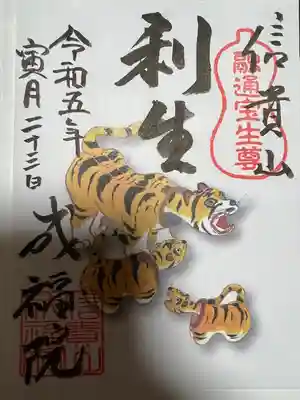 信貴山
融通宝生尊
利生
令和五年
寅月二十三日
成福院